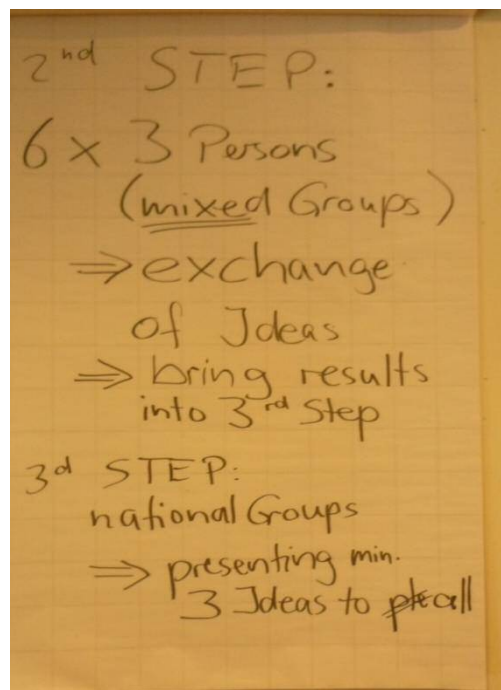 2nd STEP:
6 x 3 Persons
(mixed Groups)
⇒ exchange
of Ideas
⇒ bring results
into 3rd Step
3d STEP:
national Groups
⇒ presenting min.
3 Ideas to all